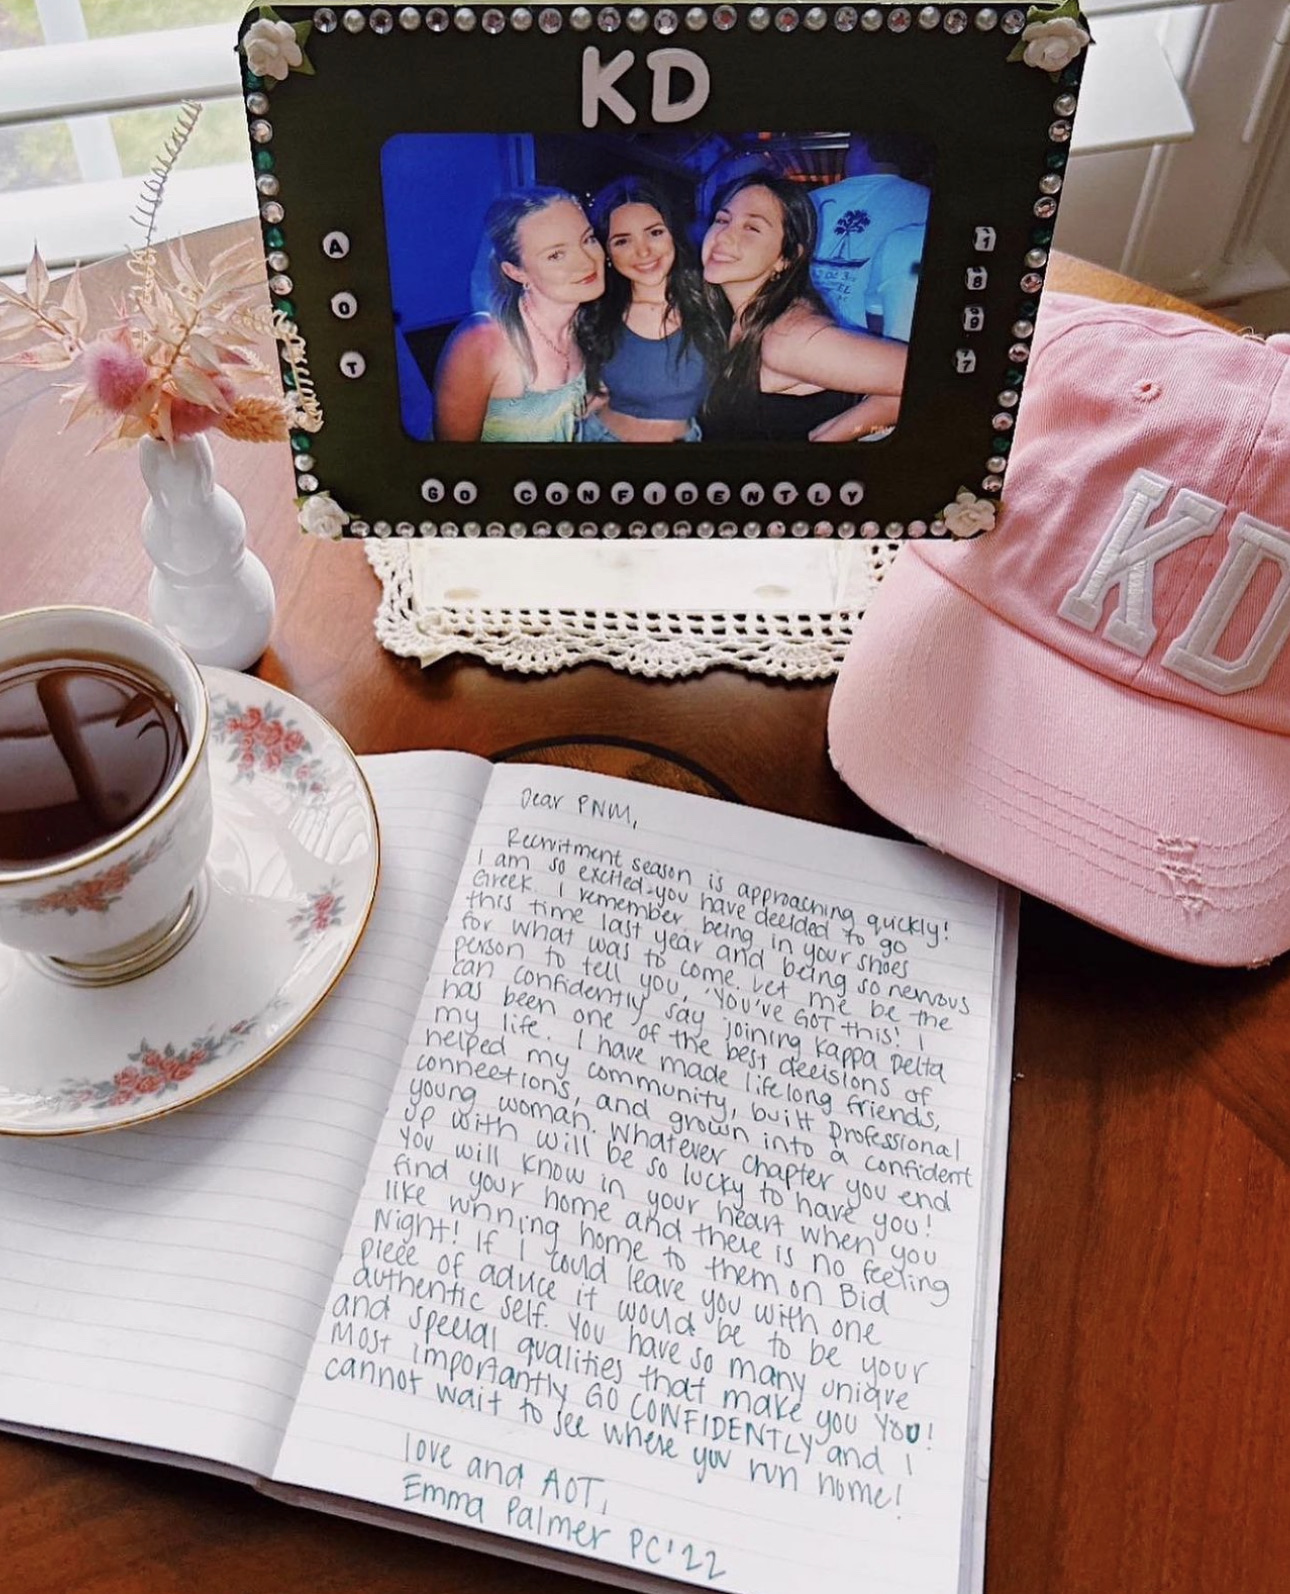 KD
A
O
T
1
8
9
7
GO CONFIDENTLY
KD
Dear PNM,
Recruitment season is approaching quickly!
I am so excited you have decided to go
Greek. I remember being in your shoes
this time last year and being so nervous
for what was to come. Let me be the
person to tell you, 'YOU'VE GOT this! I
can confidently say joining Kappa Delta
has been one of the best decisions of
my life. I have made lifelong friends,
helped my community, built professional
connections, and grown into a confident
young woman. Whatever chapter you end
up with will be so lucky to have you!
You will know in your heart when you
find your home and there is no feeling
like running home to them on Bid
Night! If I could leave you with one
piece of advice it would be to be your
authentic self. You have so many unique
and special qualities that make you YOU!
Most importantly GO CONFIDENTLY and I
cannot wait to see where you run home!
love and AOT,
Emma Palmer PC'22